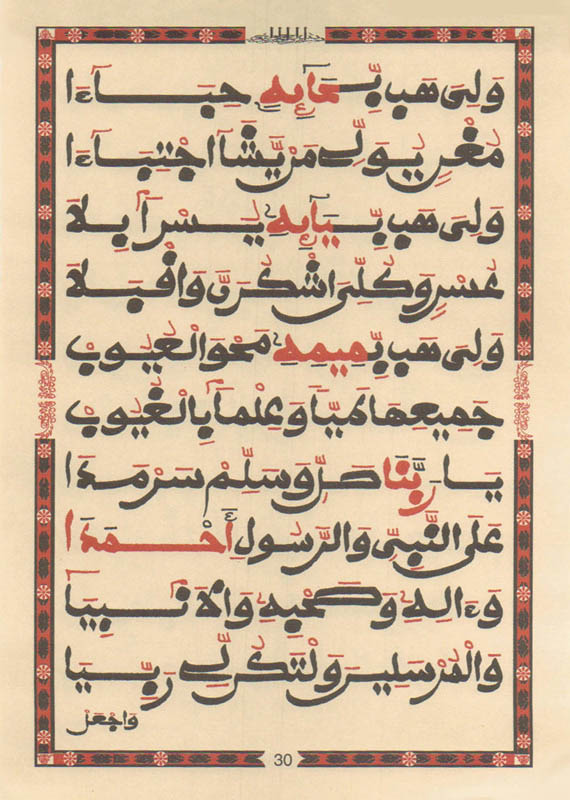 وَلِىَ هَبْ بِّحَآيِهِ حِبَآءَا
مُغْنٍ يُوَلِّى مَن يَّشَآ اجْتِبَآءَا
وَلِىَ هَبْ بِّيَآيِهِ يُسْرًا بِلَا
عُسْرٍ وَكُلِّىَ اشْكُرَنَّ وَاقْبَلَا
وَلِىَ هَبْ بِّمِيمِهِ مَحْوَ الْعُيُوبْ
جَمِيعِهَا وَعِلْمًا بِالْغُيُوبْ
يَا رَبَّنَا صَلِّ وَسَلِّمْ سَرْمَدَا
عَلَى النَّبِىِّ وَالرَّسُولِ أَحْمَدَا
وَءَالِهِ وَصَحْبِهِ وَالْأَنْبِيَا
وَالْمُرْسَلِينَ وَلْتَكُن لِّى رَبِّيَا
وَاجْعَلْ
30